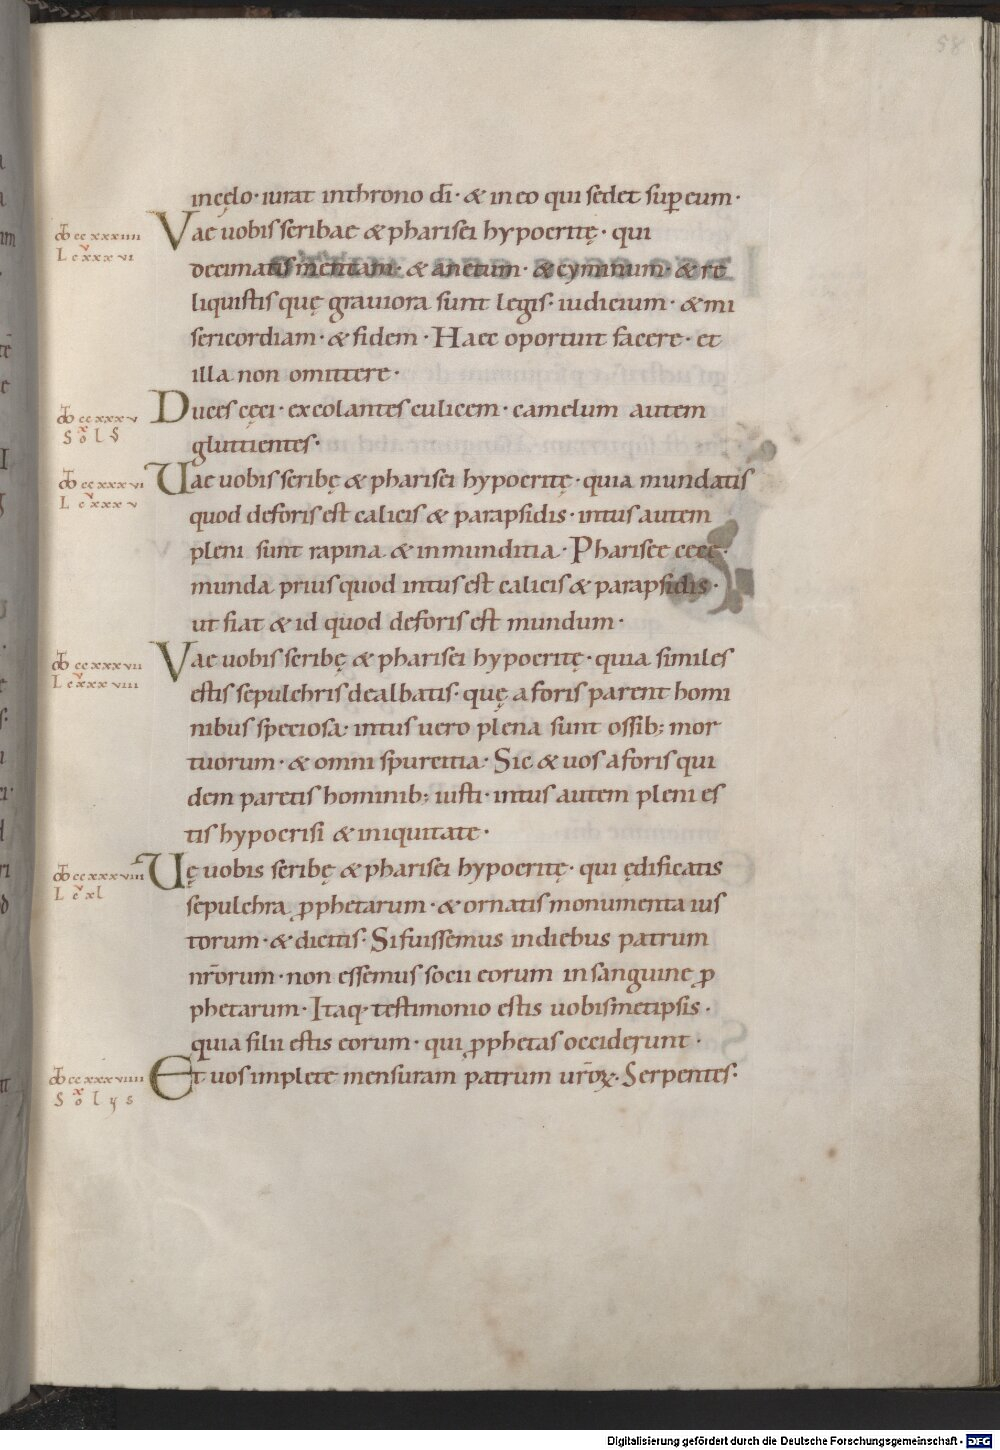 58
incęlo· iurat inthrono dī· & in eo qui sedet sup eum·
Vae uobis scribae & pharisei hypocritę· qui
decimatis mentam· & anetum· & cyminum· & re
liquistis quę grauiora sunt legis· iudicium· & mi
sericordiam· & fidem· Haec oportuit facere· et
illa non omittere·
Duces cęci· excolantes culicem· camelum autem
gluttientes·
Uae uobis scribę & pharisei hypocritę· quia mundatis
quod deforis est calicis & parapsidis· intus autem
pleni sunt rapina & inmunditia· Pharisee cece·
munda prius quod intus est calicis & parapsidis·
ut fiat & id quod deforis est mundum·
Vae uobis scribę & pharisei hypocritę· quia similes
estis sepulchris dealbatis· quę a foris parent homi
nibus speciosa· intus uero plena sunt ossib; mor
tuorum· & omni spurcitia· Sic & uos a foris qui
dem paretis hominib; iusti· intus autem pleni es
tis hypocrisi & iniquitate·
Uę uobis scribę & pharisei hypocritę· qui ędificatis
sepulchra ꝓphetarum· & ornatis monumenta ius
torum· & dicitis· Si fuissemus in diebus patrum
nr̄orum· non essemus socii eorum in sanguine ꝓ
phetarum· Itaq· testimonio estis uobismetipsis·
quia filii estis eorum· qui ꝓphetas occiderunt·
Et uos implete mensuram patrum ur̄oꝝ· Serpentes·
cc xxx iiii
L c xxx vi
cc xxx v
S o l S
cc xxx vi
L c xxx v
cc xxx vii
L c xxx viii
cc xxx viii
L c xl
cc xxx viiii
S o l y s
Digitalisierung gefördert durch die Deutsche Forschungsgemeinschaft - DFG